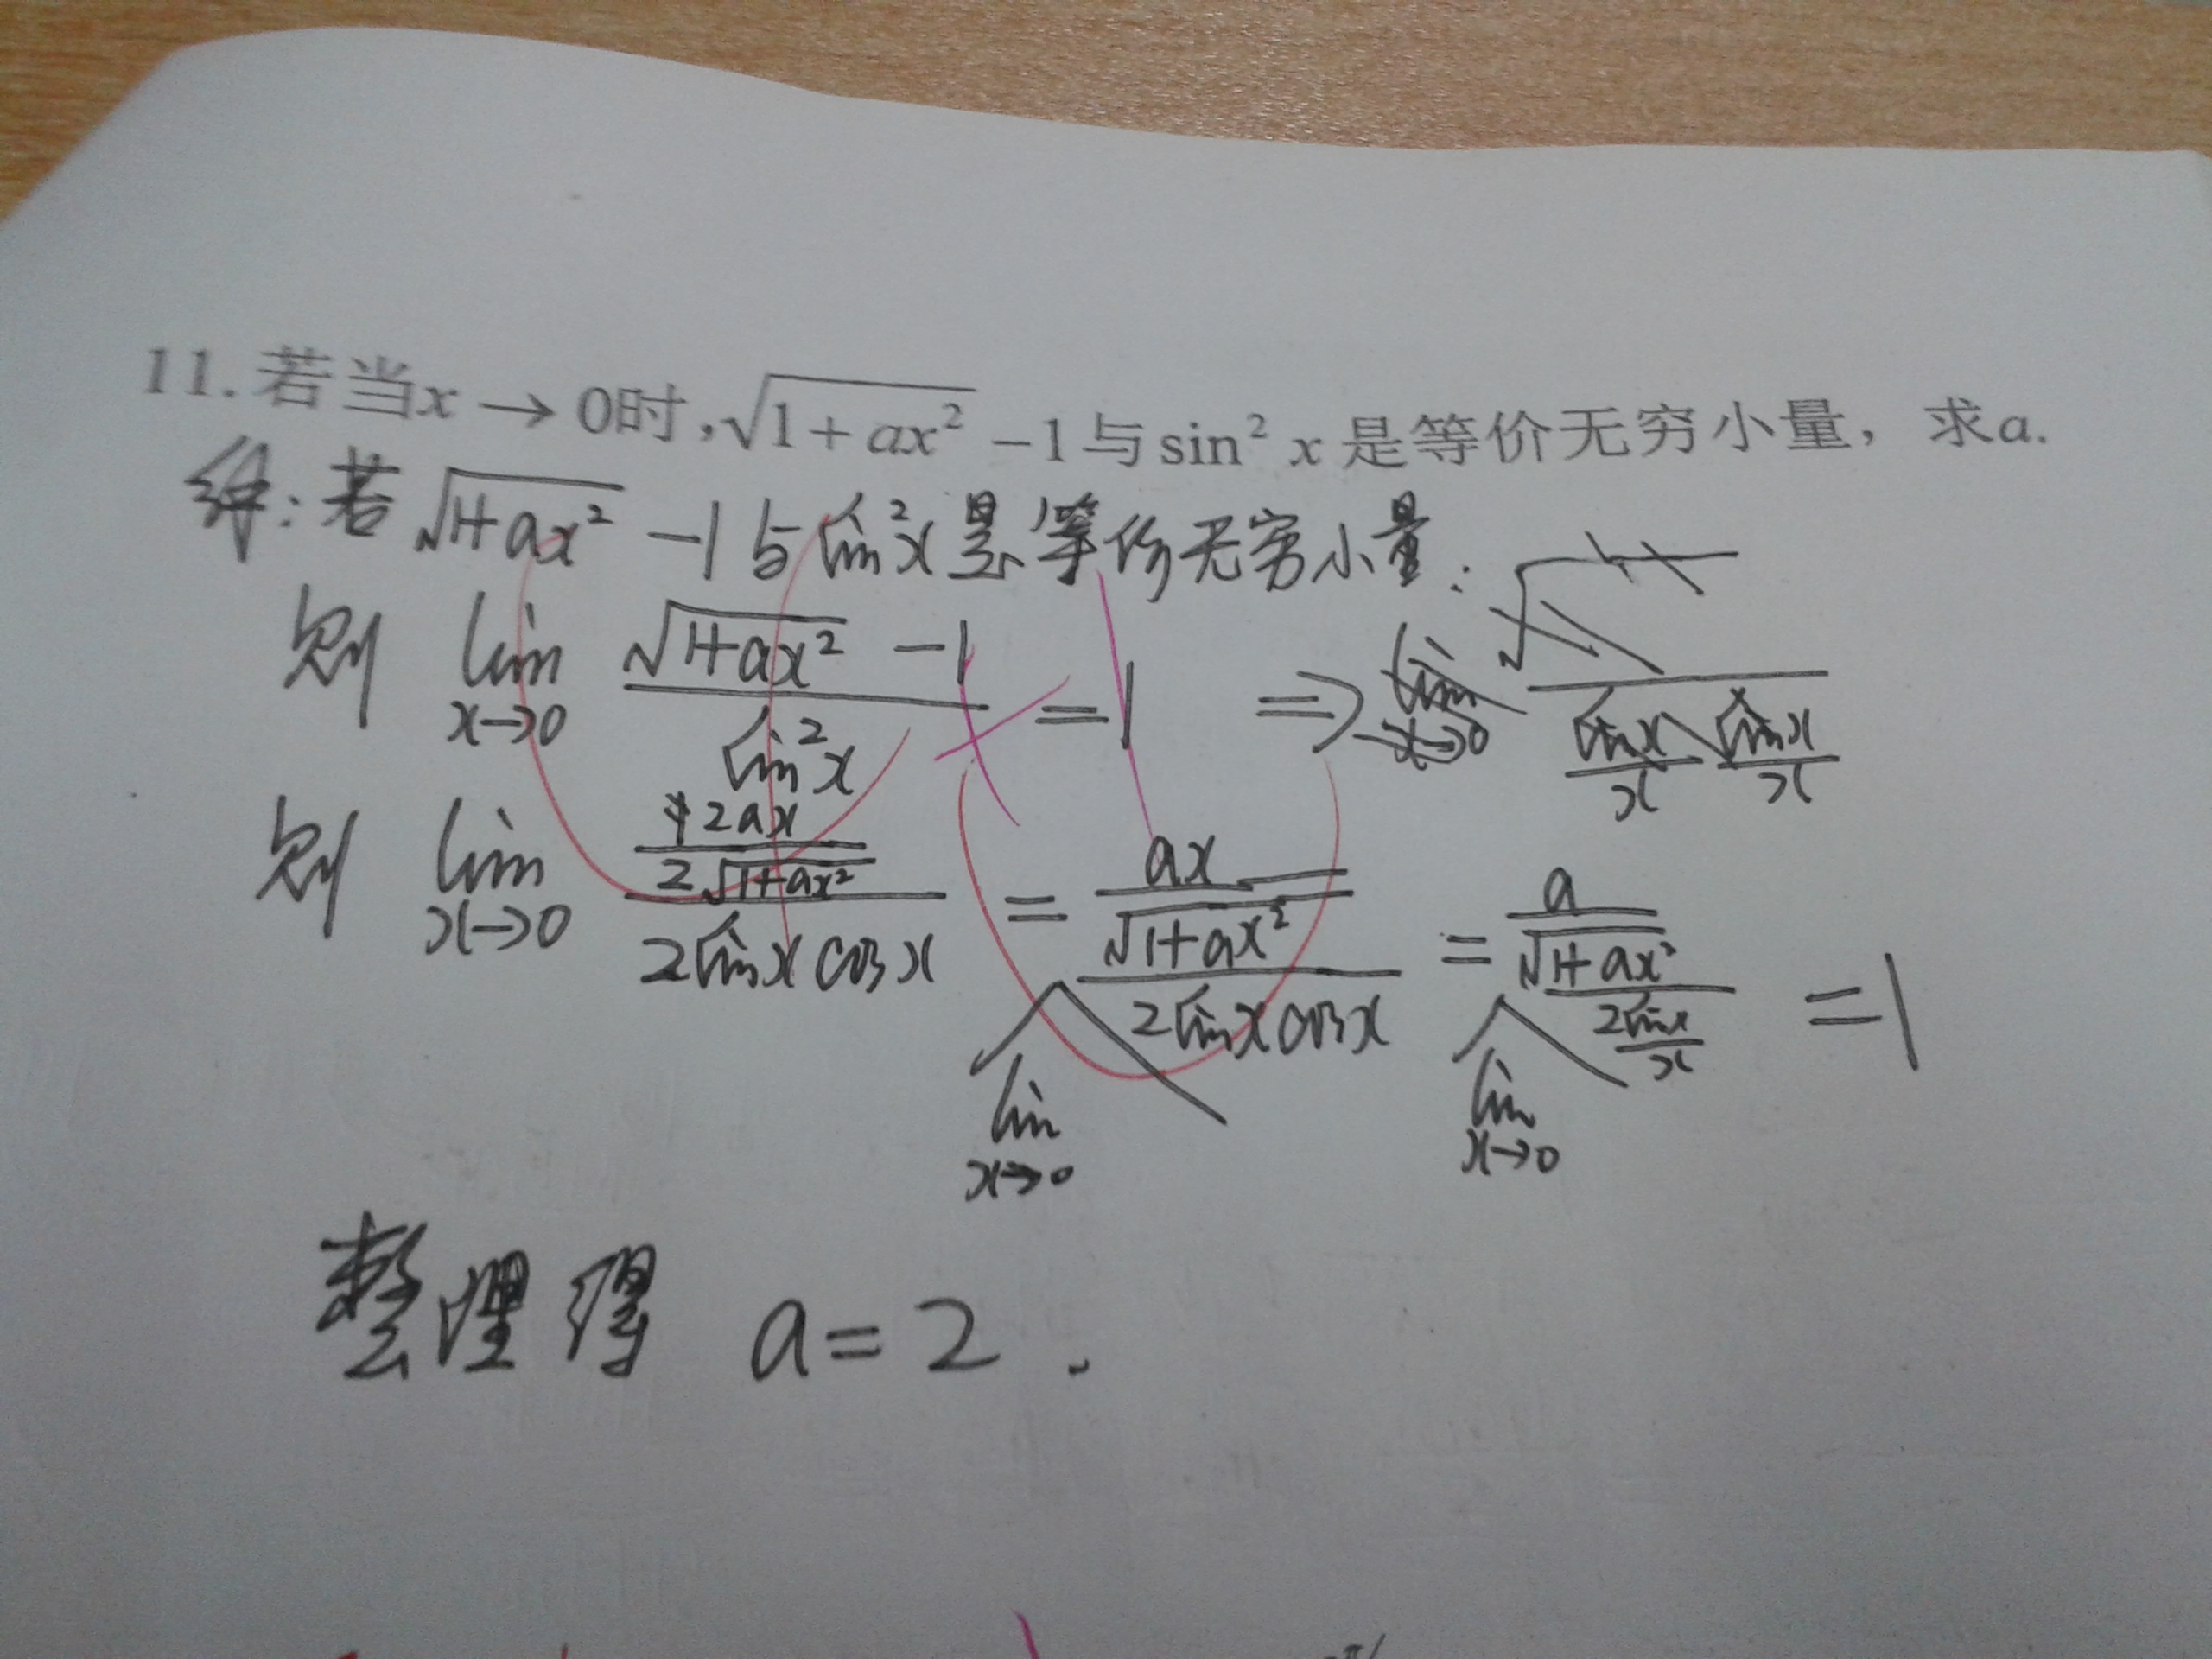 11. 若当x → 0时, √(1+ax²) −1与sin² x 是等价无穷小量，求a.
解: 若 √(1+ax²) −1 与 sin²x 是等价无穷小量:
则 lim x→0 (√(1+ax²) −1)/(sin²x) = 1 ⇒
则 lim x→0 (2ax/(2√(1+ax²)))/(2sinx cosx) = lim x→0 (ax/√(1+ax²))/(2sinx cosx) = lim x→0 (a/√(1+ax²))/(2sinx/x) = 1
整理得 a = 2 .